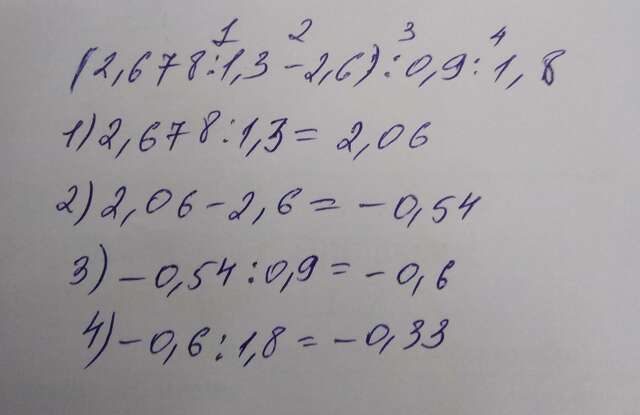 1 2 3 4
(2,678:1,3-2,6):0,9:1,8
1) 2,678:1,3=2,06
2) 2,06-2,6=-0,54
3) -0,54:0,9=-0,6
4) -0,6:1,8=-0,33